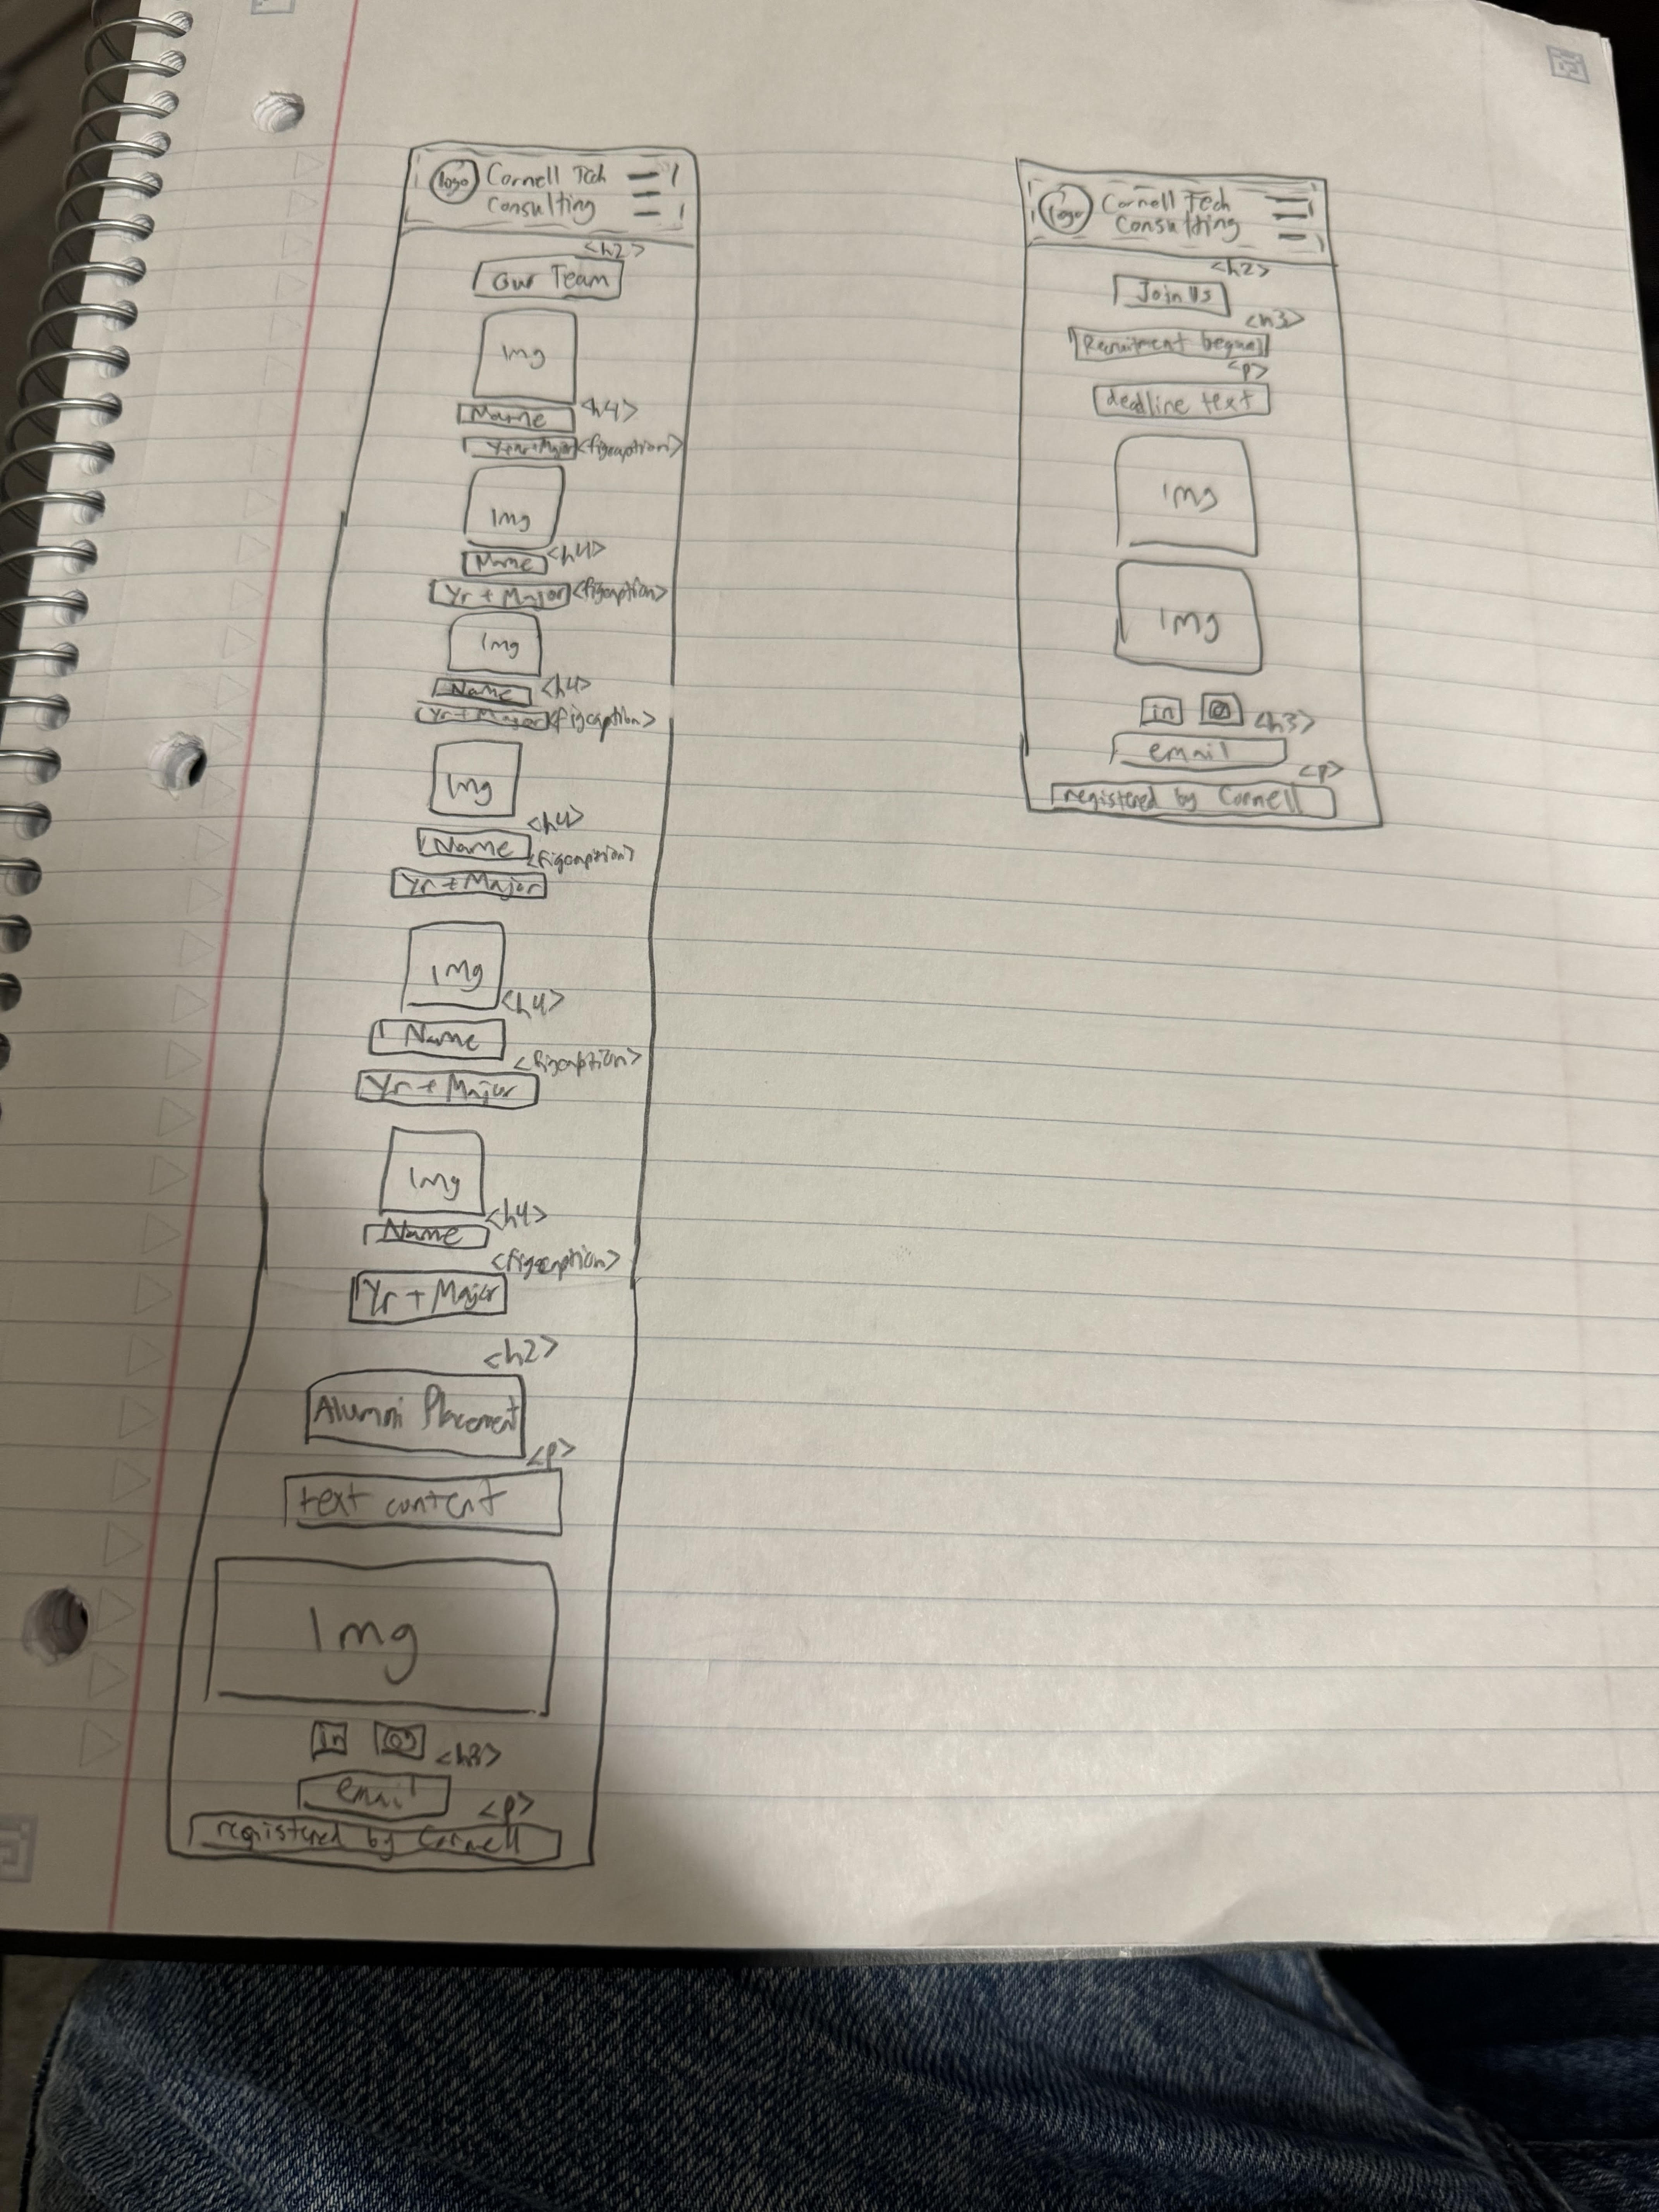 logo Cornell Tech
Consulting
<h2>
Our Team
Img
Name <h4>
Year+Major <figcaption>
Img
Name <h4>
Yr + Major <figcaption>
Img
Name <h4>
Yr + Major <figcaption>
Img
<h4>
Name
<figcaption>
Yr + Major
Img
<h4>
Name
<figcaption>
Yr + Major
Img
<h4>
Name
<figcaption>
Yr + Major
<h2>
Alumni Placement
<p>
text content
Img
in
<h3>
email
<p>
registered by Cornell
logo Cornell Tech
Consulting
<h2>
Join Us
<h3>
Recruitment
<p>
deadline text
Img
Img
in
<h3>
email
<p>
registered by Cornell